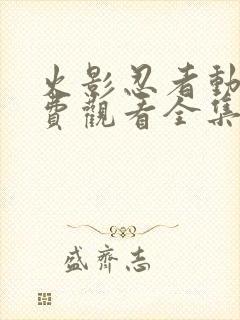 火影忍者動
費觀看全集
盛齊志